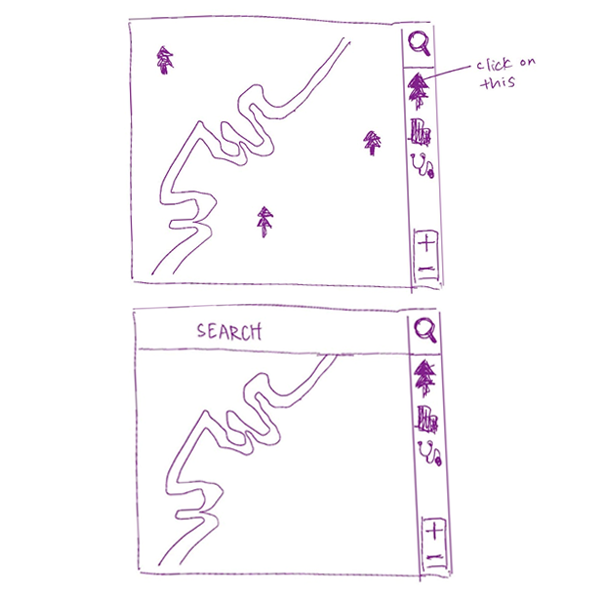 click on
this
+
−
SEARCH
+
−